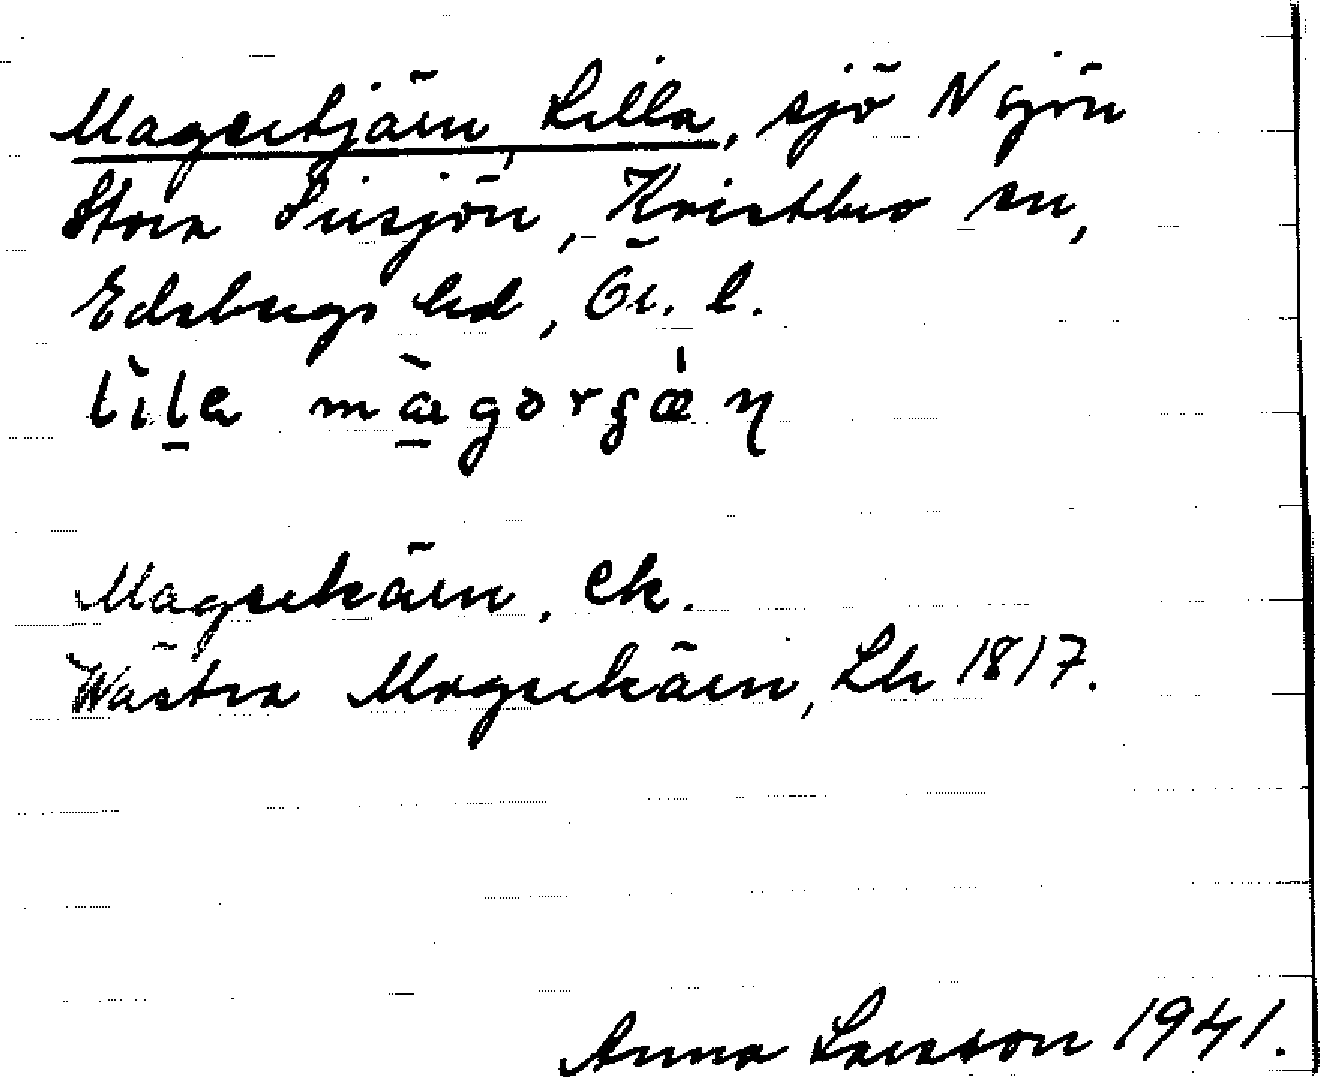 Magertjärn, Lilla, sjö N sjön
Stora Sirsjön, Kvistbro sn,
Edsbergs hd, Ör. l.
lìla màgərʂæ̍ɳ
Magerkärn, Ek.
Wästra Magerkärn, Lk 1817.
Anna Larsson 1941.